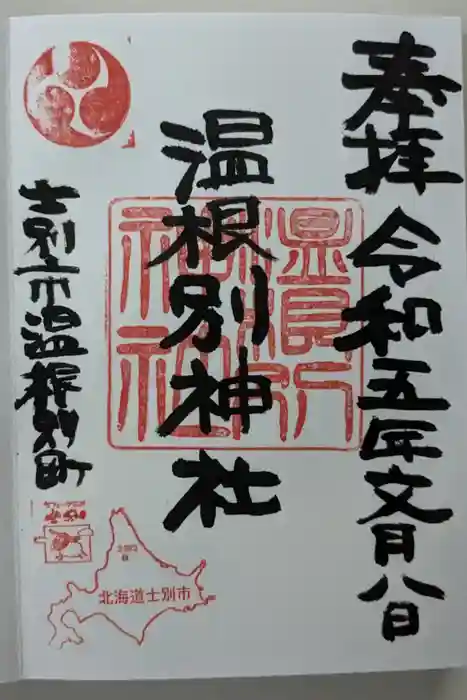 奉拝 令和五年文月八日
温根別神社
温根別神社
士別市温根別町
北海道士別市